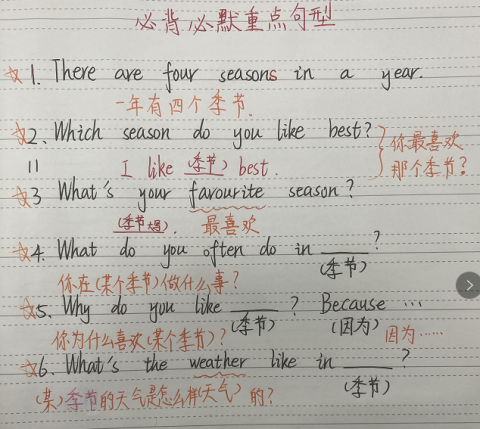 必背必默重点句型
☆1. There are four seasons in a year.
一年有四个季节.
☆2. Which season do you like best? 你最喜欢
= I like (季节) best. 那个季节?
☆3 What's your favourite season?
(季节). 最喜欢
☆4. What do you often do in ____?
(季节)
你在(某个季节)做什么事?
☆5. Why do you like ____? Because ...
(季节) (因为)
你为什么喜欢(某个季节)? 因为......
☆6. What's the weather like in ____?
(季节)
(某)季节的天气是怎么样(天气)的?